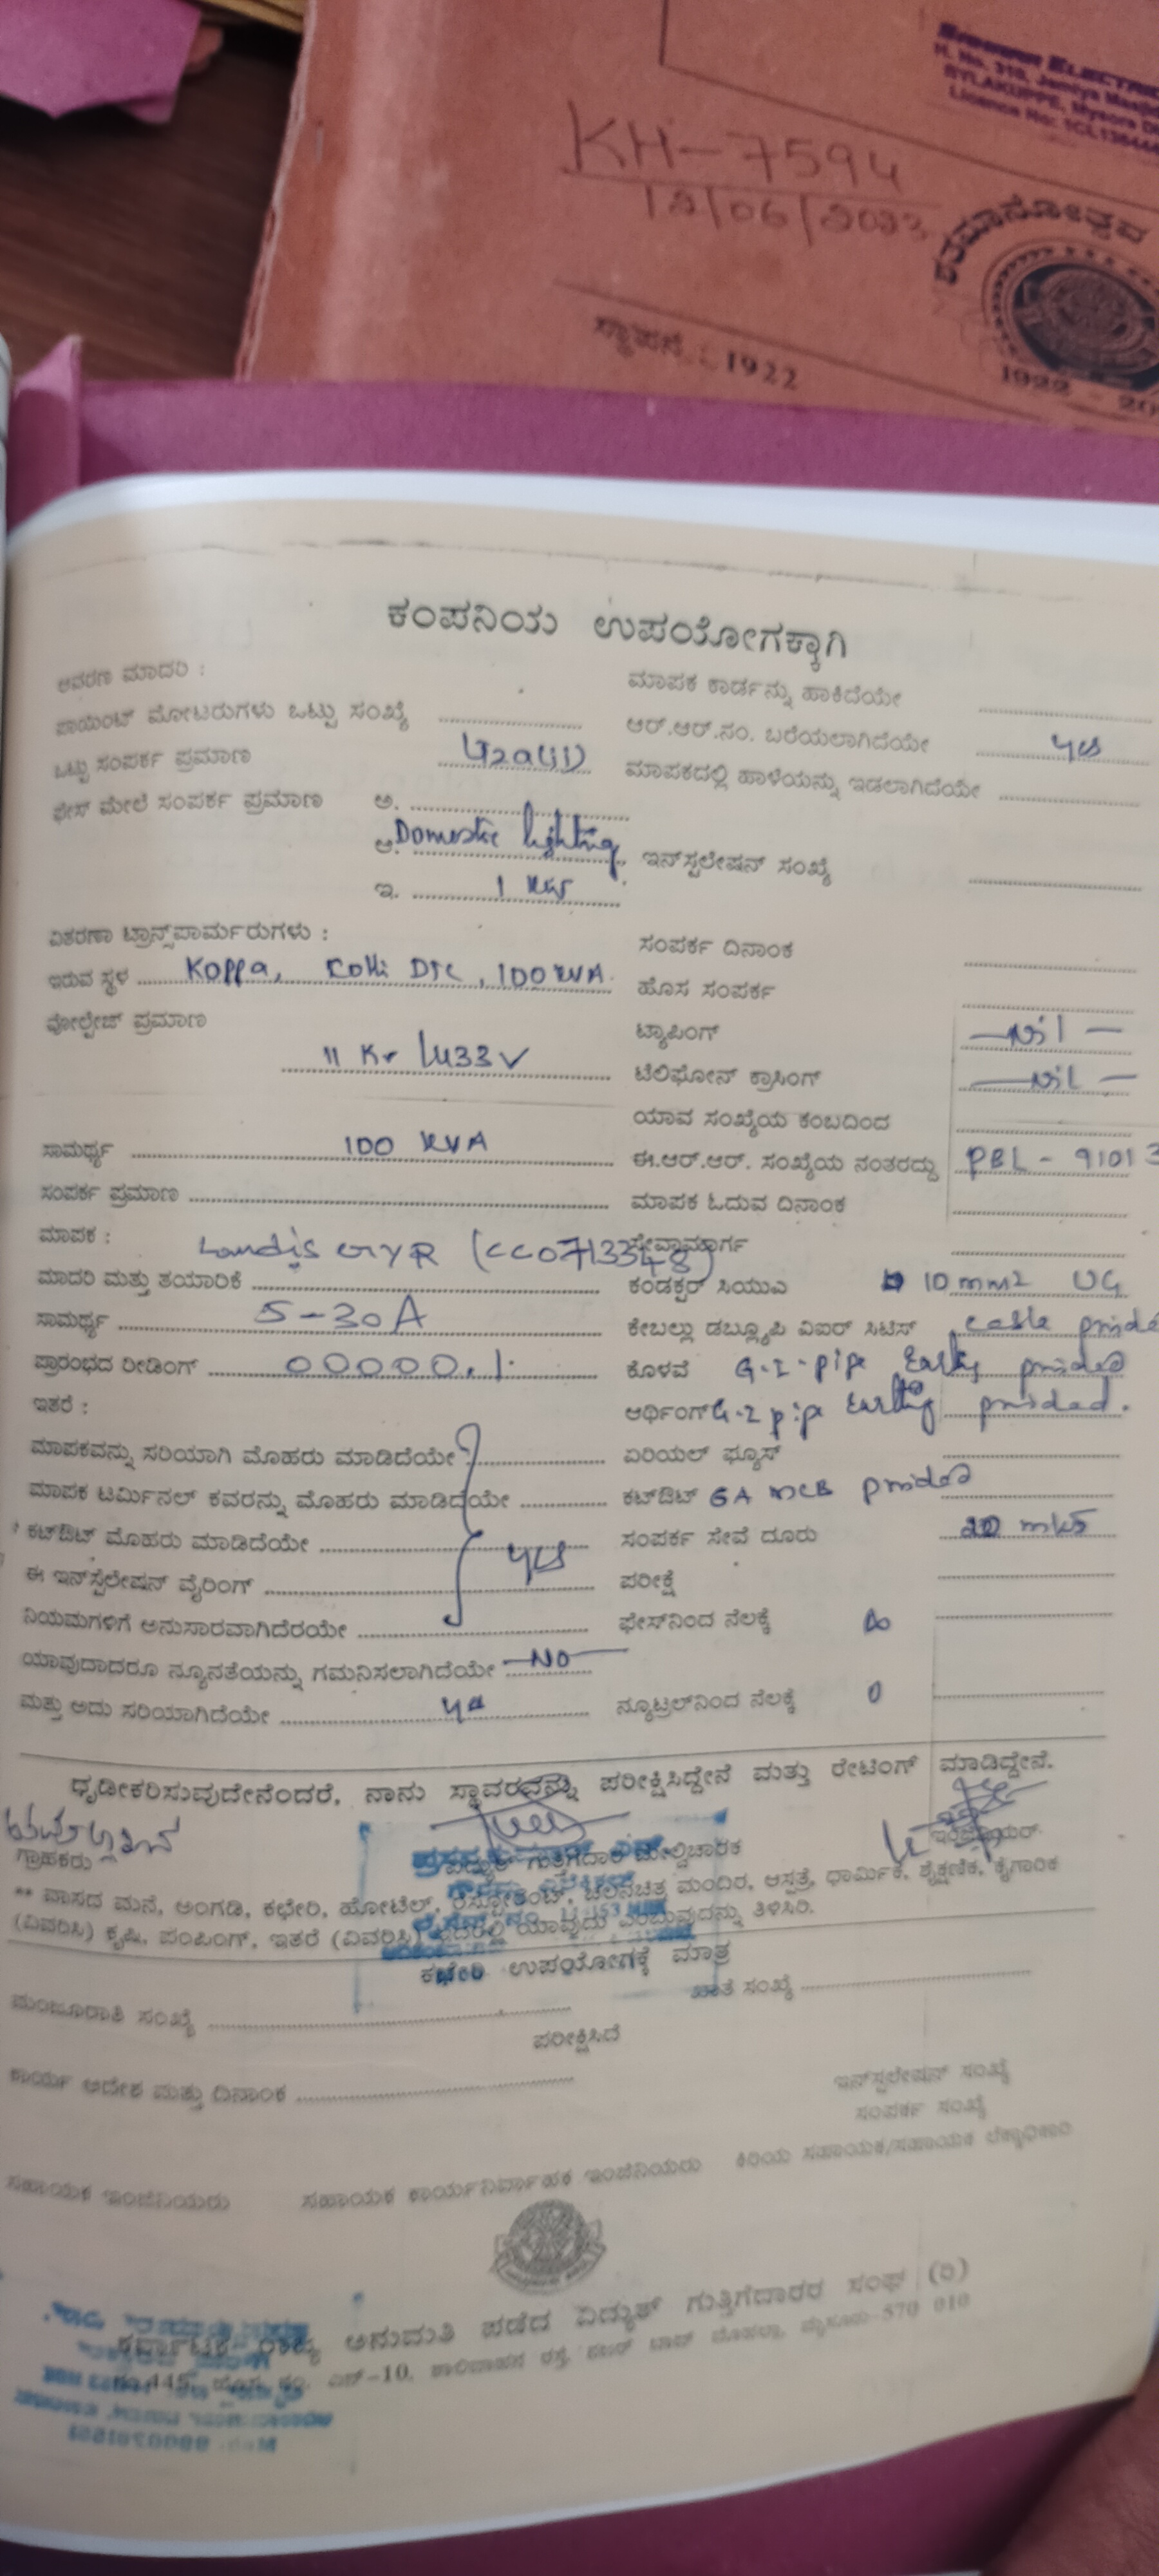 ELECTRIC
BYLAKUPPE, Mysore
KH-7594
ಶತಮಾನೋತ್ಸವ
ಸ್ಥಾಪನೆ : 1922
1922 - 20
ಕಂಪನಿಯ ಉಪಯೋಗಕ್ಕಾಗಿ
ಆವರಣ ಮಾದರಿ :
ಮಾಪಕ ಕಾರ್ಡನ್ನು ಹಾಕಿದೆಯೇ
ಪಾಯಿಂಟ್ ಮೋಟರುಗಳು ಒಟ್ಟು ಸಂಖ್ಯೆ
ಆರ್.ಆರ್.ನಂ. ಬರೆಯಲಾಗಿದೆಯೇ yes
ಒಟ್ಟು ಸಂಪರ್ಕ ಪ್ರಮಾಣ
ಮಾಪಕದಲ್ಲಿ ಹಾಳೆಯನ್ನು ಇಡಲಾಗಿದೆಯೇ
ಫೇಸ್ ಮೇಲೆ ಸಂಪರ್ಕ ಪ್ರಮಾಣ ಅ.
ಆ. Domestic lighting ಇನ್‌ಸ್ಟಲೇಷನ್ ಸಂಖ್ಯೆ
ಇ. 1 KW
ವಿತರಣಾ ಟ್ರಾನ್ಸ್‌ಪಾರ್ಮರುಗಳು :
ಸಂಪರ್ಕ ದಿನಾಂಕ
ಇರುವ ಸ್ಥಳ Koppa, DTC, 100 KVA
ಹೊಸ ಸಂಪರ್ಕ
ವೋಲ್ಟೇಜ್ ಪ್ರಮಾಣ
ಟ್ಯಾಪಿಂಗ್ — Nil —
11 Kv / 433 V
ಟೆಲಿಫೋನ್ ಕ್ರಾಸಿಂಗ್ — Nil —
ಯಾವ ಸಂಖ್ಯೆಯ ಕಂಬದಿಂದ
ಸಾಮರ್ಥ್ಯ 100 KVA
ಈ.ಆರ್.ಆರ್. ಸಂಖ್ಯೆಯ ನಂತರದ್ದು PBL - 91013
ಸಂಪರ್ಕ ಪ್ರಮಾಣ
ಮಾಪಕ ಓದುವ ದಿನಾಂಕ
ಮಾಪಕ : Landis GYR (CC0713348)
ಸೇವಾಮಾರ್ಗ
ಮಾದರಿ ಮತ್ತು ತಯಾರಿಕೆ
ಕಂಡಕ್ಟರ್ ಸಿಯುಎ 10 mm2 UG
ಸಾಮರ್ಥ್ಯ 5-30A
ಕೇಬಲ್ಲು ಡಬ್ಲ್ಯೂಪಿ ವಿಐರ್ ಸಿಟಿಸ್ cable
ಪ್ರಾರಂಭದ ರೀಡಿಂಗ್ 00000.1
ಕೊಳವೆ G.I-pipe Earthing provided
ಇತರೆ :
ಆರ್ಥಿಂಗ್ G.I pipe Earthing provided.
ಮಾಪಕವನ್ನು ಸರಿಯಾಗಿ ಮೊಹರು ಮಾಡಿದೆಯೇ
ಏರಿಯಲ್ ಫ್ಯೂಸ್
ಮಾಪಕ ಟರ್ಮಿನಲ್ ಕವರನ್ನು ಮೊಹರು ಮಾಡಿದೆಯೇ
ಕಟ್‌ಔಟ್ 6A MCB provided
ಕಟ್‌ಔಟ್ ಮೊಹರು ಮಾಡಿದೆಯೇ yes
ಸಂಪರ್ಕ ಸೇವೆ ದೂರು 20 mts
ಈ ಇನ್‌ಸ್ಟೆಲೇಷನ್ ವೈರಿಂಗ್
ಪರೀಕ್ಷೆ
ನಿಯಮಗಳಿಗೆ ಅನುಸಾರವಾಗಿದೆರಯೇ
ಫೇಸ್‌ನಿಂದ ನೆಲಕ್ಕೆ ∞
ಯಾವುದಾದರೂ ನ್ಯೂನತೆಯನ್ನು ಗಮನಿಸಲಾಗಿದೆಯೇ NO
ಮತ್ತು ಅದು ಸರಿಯಾಗಿದೆಯೇ
ನ್ಯೂಟ್ರಲ್‌ನಿಂದ ನೆಲಕ್ಕೆ 0
ಧೃಡೀಕರಿಸುವುದೇನೆಂದರೆ, ನಾನು ಸ್ಥಾವರವನ್ನು ಪರೀಕ್ಷಿಸಿದ್ದೇನೆ ಮತ್ತು ರೇಟಿಂಗ್ ಮಾಡಿದ್ದೇನೆ.
ಗ್ರಾಹಕರು
ವಿದ್ಯುತ್ ಗುತ್ತಿಗೆದಾರ ಮೇಲ್ವಿಚಾರಕ
ಇಂಜಿನಿಯರ್
** ವಾಸದ ಮನೆ, ಅಂಗಡಿ, ಕಛೇರಿ, ಹೋಟೆಲ್, ರೆಸ್ಟೋರೆಂಟ್, ಚಲನಚಿತ್ರ ಮಂದಿರ, ಆಸ್ಪತ್ರೆ, ಧಾರ್ಮಿಕ, ಶೈಕ್ಷಣಿಕ, ಕೈಗಾರಿಕ
(ವಿವರಿಸಿ) ಕೃಷಿ, ಪಂಪಿಂಗ್, ಇತರೆ (ವಿವರಿಸಿ) ಇದರಲ್ಲಿ ಯಾವುದು ಎಂಬುವುದನ್ನು ತಿಳಿಸಿರಿ.
ಕಛೇರಿ ಉಪಯೋಗಕ್ಕೆ ಮಾತ್ರ
ಮಂಜೂರಾತಿ ಸಂಖ್ಯೆ
ಖಾತೆ ಸಂಖ್ಯೆ
ಪರೀಕ್ಷಿಸಿದೆ
ಕಾರ್ಯ ಆದೇಶ ಮತ್ತು ದಿನಾಂಕ
ಇನ್‌ಸ್ಟಲೇಷನ್ ಸಂಖ್ಯೆ
ಸಂಪರ್ಕ ಸಂಖ್ಯೆ
ಸಹಾಯಕ ಇಂಜಿನಿಯರು
ಸಹಾಯಕ ಕಾರ್ಯನಿರ್ವಾಹಕ ಇಂಜಿನಿಯರು
ಕಿರಿಯ ಸಹಾಯಕ/ಸಹಾಯಕ ಲೆಕ್ಕಾಧಿಕಾರಿ
ಕರ್ನಾಟಕ ರಾಜ್ಯ ಅನುಮತಿ ಪಡೆದ ವಿದ್ಯುತ್ ಗುತ್ತಿಗೆದಾರರ ಸಂಘ (ರಿ)